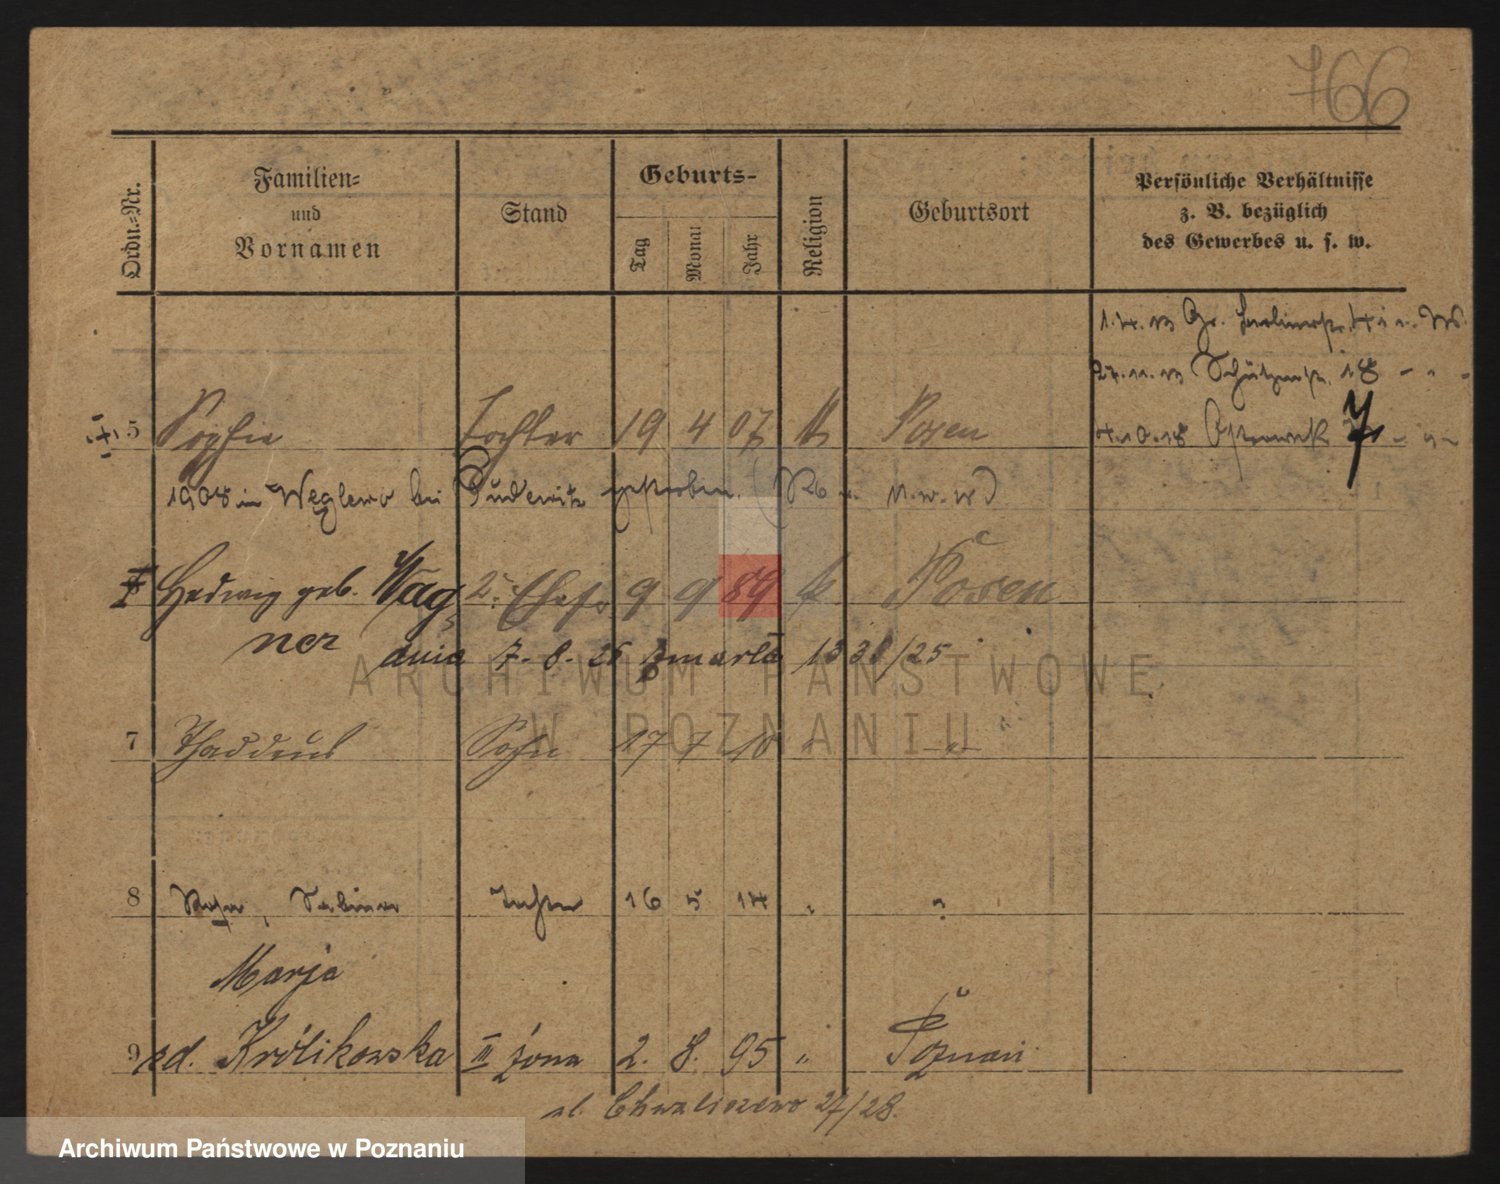 766
Ordn.=Nr.
Familien=
und
Vornamen
Stand
Geburts-
Tag
Monat
Jahr
Religion
Geburtsort
Persönliche Verhältnisse
z. B. bezüglich
des Gewerbes u. s. w.
1.4.13 Gr.
27.11.13 Schützenstr. 18 - " -
5 Sophie Tochter 19 4 07 k Posen
4.10.18 7 - " -
1908 in Węglewo bei Pudewitz gestorben.
Hedwig geb. Wag= 2. Ehefr. 9 9 89 k Posen
ner dnia 7.8.25 zmarła 1338/25
7 Thaddeus Sohn 17 7 10 " "
8 Tochter 16 5 14 " "
Marja
9 zd. Królikowska III żona 2. 8. 95 " Poznań
ul. Chwaliszewo 27/28.
ARCHIWUM PAŃSTWOWE
W POZNANIU
Archiwum Państwowe w Poznaniu